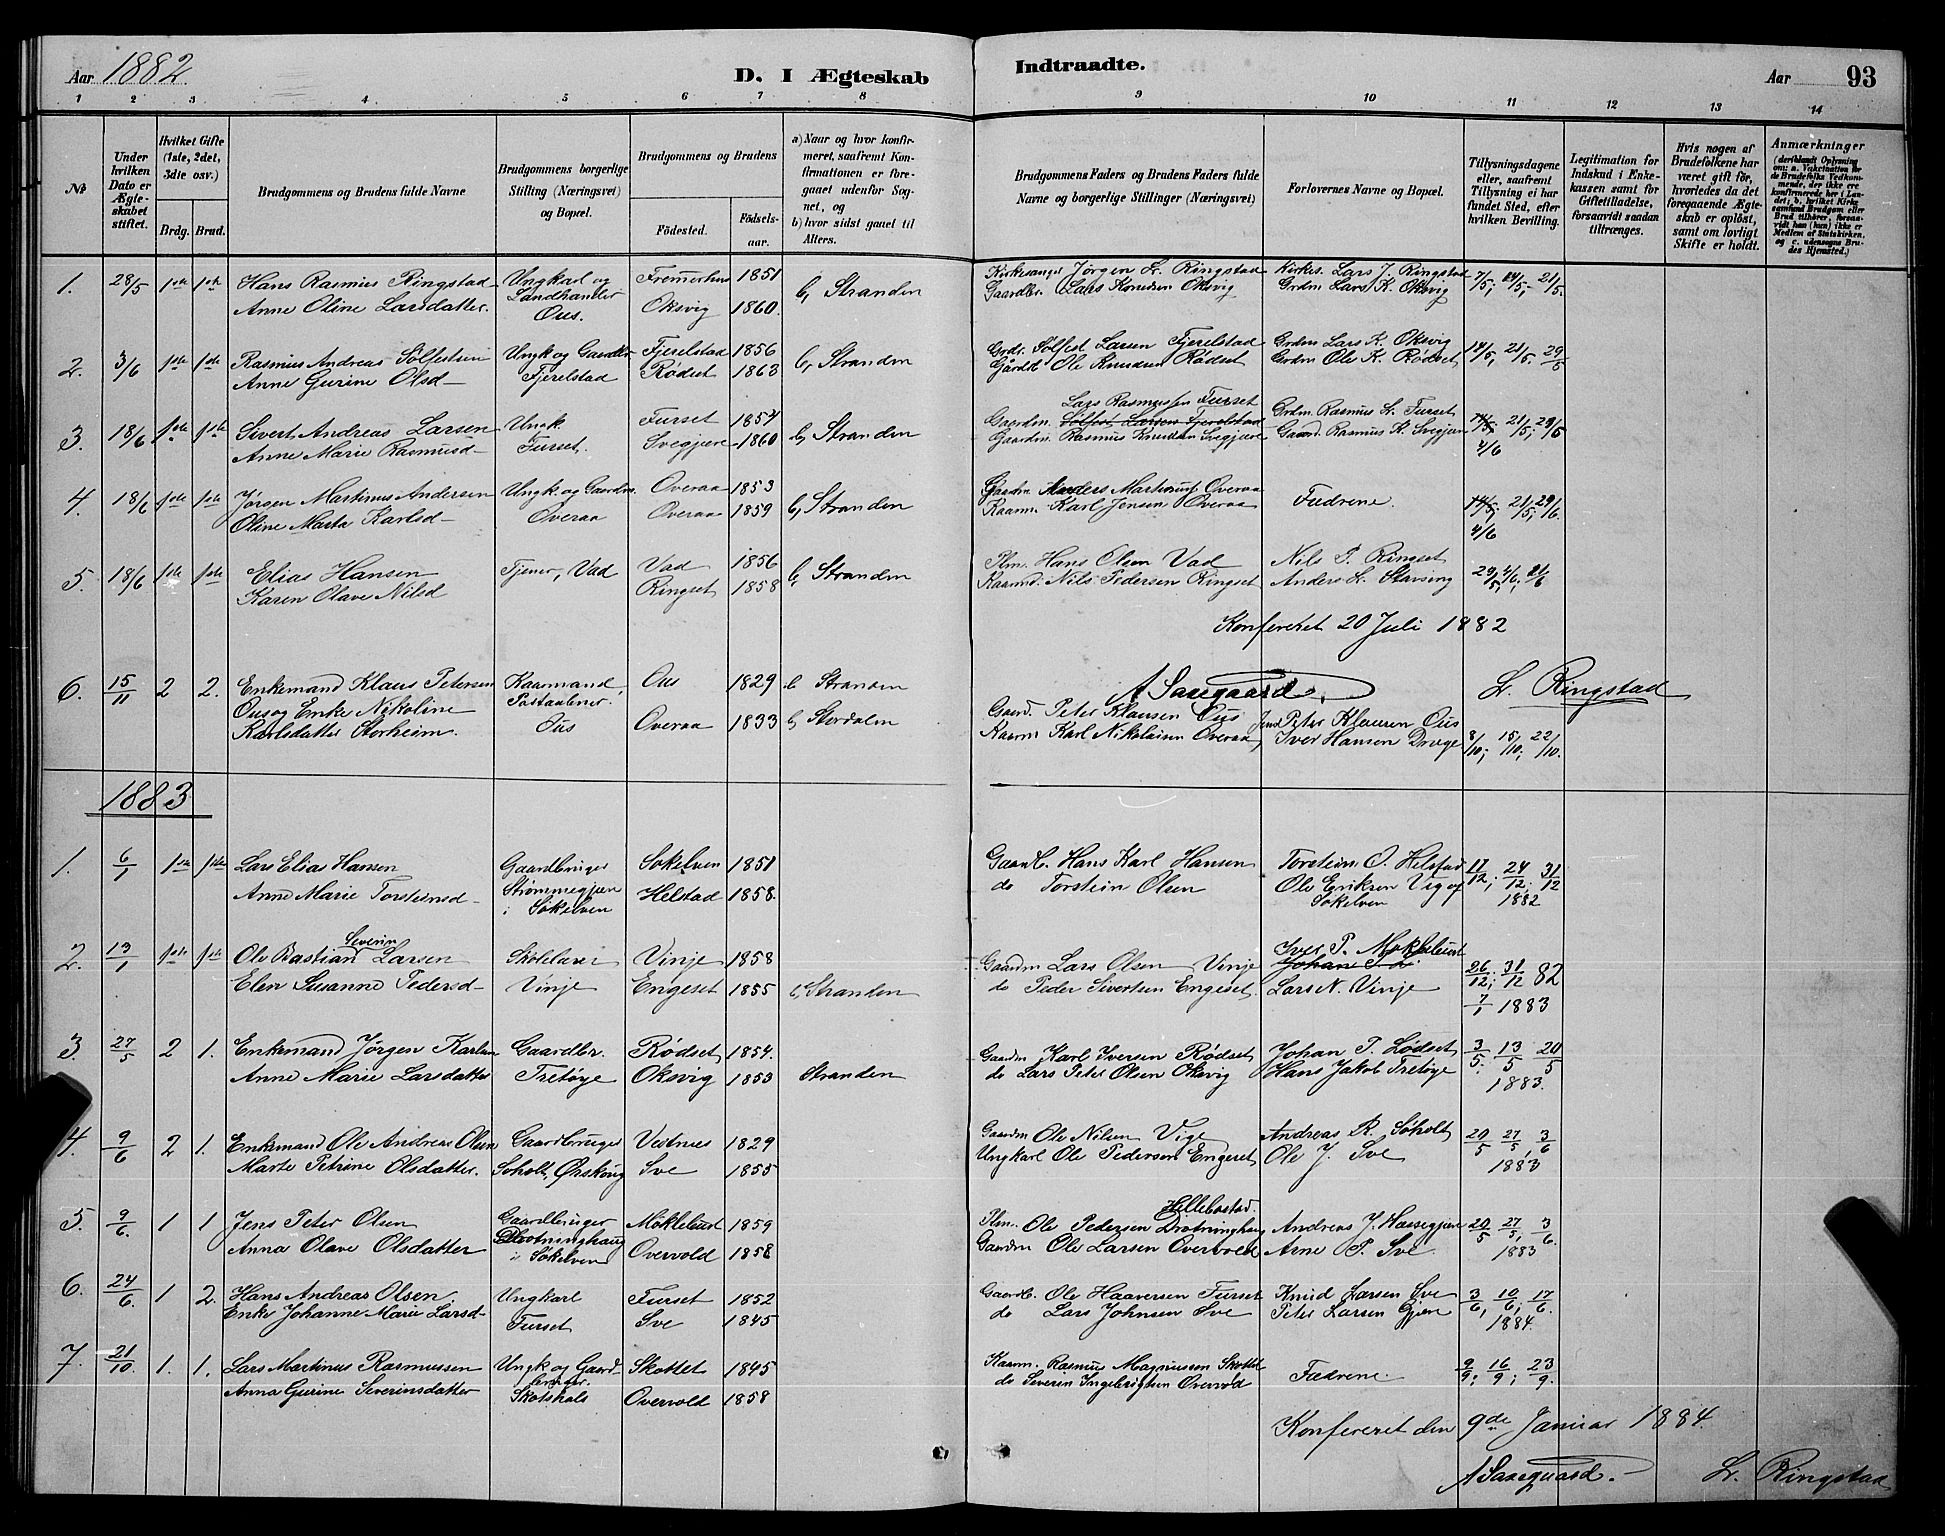 Aar 1882
D. I Ægteskab Indtraadte.
Aar 93
1 2 3 4 5 6 7 8 9 10 11 12 13 14
No
Under hvilken Dato er Ægteskabet stiftet.
Hvilket Gifte (1ste, 2det, 3die osv.)
Brdg. Brud.
Brudgommens og Brudens fulde Navne
Brudgommens borgerlige Stilling (Næringsvei) og Bopæl.
Brudgommens og Brudens
Fødested. Fødselsaar.
a) Naar og hvor konfirmeret, saafremt Konfirmationen er foregaaet udenfor Sognet, og
b) hvor sidst gaaet til Alters.
Brudgommens Faders og Brudens Faders fulde Navne og borgerlige Stillinger (Næringsvei)
Forlovernes Navne og Bopæl.
Tillysningsdagene eller, saafremt Tillysning ei har fundet Sted, efter hvilken Bevilling.
Legitimation for Indskud i Enkekassen samt for Giftetilladelse, forsaavidt saadan tiltrænges.
Hvis nogen af Brudefolkene har været gift før, hvorledes da det foregaaende Ægteskab er opløst, samt om lovligt Skifte er holdt.
Anmærkninger
1. 28/5 1ste 1ste Hans Rasmus Ringstad Ungkarl og Fremerhus 1851 b, Stranden Kirkesanger Jørgen L. Ringstad Kirkes. Lars J. Ringstad 7/5; 14/5; 21/5.
Anne Oline Larsdatter. Landhandler Ous. Oksvig 1860. Gaardbr. Lars Knudsen Oksvig Grdm Lars K. Oksvig
2. 3/6 1ste 1ste Rasmus Andreas Sølfestsen Ungk og Gaardbr Fjerelstad 1856 b, Stranden Grdr. Sølfest Larsen Fjerelstad Grdm Lars K. Oksvig 14/5, 21/5. 29/5
Anne Gurine Olsd- Fjerelstad Rødset 1863 Ole Knudsen Rødset Grdm Ole K. Rødset
Lars Rasmussen Furset
3. 18/6 1ste 1ste Sivert Andreas Larsen Ungk Furset 1854 b, Stranden Gaardm. Sølfest Larsen Fjerelstad Grdm. Rasmus L. Furset 14/5; 21/5; 29/5
Anne Marie Rasmusd- Furset. Svegjære 1860 Gaardm. Rasmus Knudsen Svegjære Gaard. Rasmus K. Svegjære 4/6
4. 18/6 1ste 1ste Jørgen Martinus Andersen Ungk. og Gaardm. Overaa 1853 b, Stranden Gaardm. Anders Martinus Overaa Fædrene. 14/5; 21/5; 29/6.
Oline Marta Karlsd- Overaa Overaa 1859 Kaarm. Karl Jensen Overaa 4/6
5. 18/6 1ste 1ste Elias Hansen Tjener, Vad Vad 1856 b, Stranden Plm. Hans Olsen Vad Nils P. Ringset
Karen Olave Nilsd Ringset 1858 Kaarmd. Nils Pedersen Ringset Anders L. Stavseng 29/5, 4/6, 21/6
Konfereret 20 Juli 1882
A Saxgaard, L. Ringstad
6. 15/11 2 2. Enkemand Klaus Petersen Kaarmand, Ous 1829 b Stranden Gaard. Peter Klausen Ous Peter Klausen Ous
Ous og Enke Nikoline Postaabner. Ous Overaa 1833 b, Stordalen Kaarm Karl Nikolaisen Overaa Iver Hansen Drege 8/10; 15/10; 22/10.
Karlsdatter Storheim.
1883
1. 6/1 1ste 1ste Lars Elias Hansen Gaardbruger Søkelven 1851 Gaardb. Hans Karl Hansen Torstein O. Helstad 17/12; 24/12; 31/12
Anne Marie Torsteinsd- Strømmegjære i Søkelven Helstad 1858. do Torstein Olsen Ole Eriksen Vig af Søkelven 1882
Severin
2. 13/1 1ste 1ste Ole Bastian Larsen Skolelærer Vinje 1858 Gaardm Lars Olsen Vinje Iver P. Møkkelbust 26/12; 31/12 82
Elen Susanne Pedersd- Vinje Engeset 1855 b, Stranden do Peder Sivertsen Engeset. Lars N. Vinje 7/1 1883
3. 27/5 2 1. Enkemand Jørgen Karlsen Gaardbr. Rødset 1854. Gaardm Karl Iversen Rødset Johan P. Lødset 3/5. 13/5 20/5
Anne Marie Larsdatter Tretøye Oksvig 1853 Stranden do Lars Peter Olsen Oksvig Hans Jakob Tretøye 1883.
4. 9/6 2 1. Enkemand Ole Andreas Olsen Gaardbruger Vestnes 1829 Gaardm Ole Nilsen Vige Andreas R. Søholt 20/5 27/5, 3/6
Marte Petrine Olsdatter. Søholt, Ørskoug Sve 1855 Ungkarl Ole Pedersen Engeset Ole J. Sve 1883
Hillebostad.
5. 9/6 1 1 Jens Peter Olsen Gaardbruger Møklebust 1859 Plm. Ole Pedersen Drotninghaug Andreas J. Hassegjære 20/5 27/5, 3/6.
Anna Olave Olsdatter Drotninghaug i Søkelven Overvold 1858 Gaardm Ole Larsen Overvold Arne P. Sve 1883
6. 24/6. 1 2. Hans Andreas Olsen Ungkarl Furset 1852 Gaardb. Ole Haaversen Furset Knud Larsen Sve 3/6, 10/6; 17/6.
Enke Johanne Marie Larsd- Furset Sve 1845 do Lars Johnsen Sve Peter Larsen Gjære 1884.
7. 21/10 1. 1. Lars Martinus Rasmussen Ungk og Gaardbruger Skottet 1845 Kaarm. Rasmus Magnussen Skottet Fædrene. 9/9; 16/9; 23/9.
Anna Gurine Severinsdatter Skotshals Overvold 1858 do Severin Ingebrigtsen Overvold
Konfereret den 9de Januar 1884.
A Saxgaard. L. Ringstad